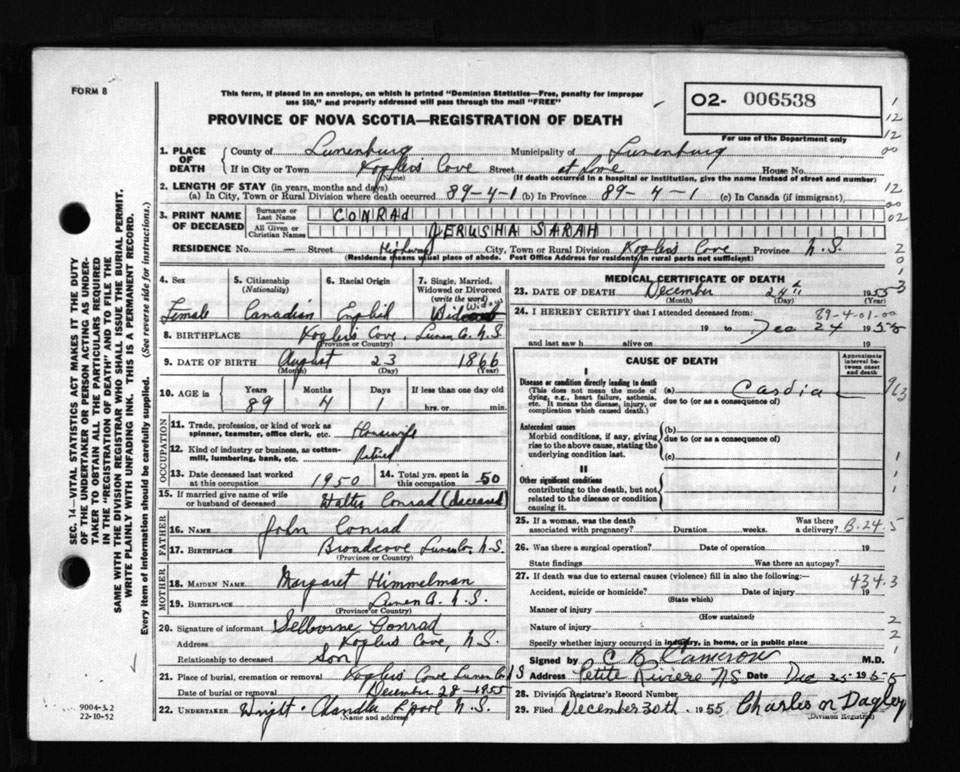 FORM 8
This form, if placed in an envelope, on which is printed "Dominion Statistics—Free, penalty for improper
use $50," and properly addressed will pass through the mail "FREE"
PROVINCE OF NOVA SCOTIA—REGISTRATION OF DEATH
O2- 006538
For use of the Department only
1. PLACE OF DEATH County of Lunenburg Municipality of Lunenburg
If in City or Town Voglers Cove Street at home House No.
(Name) (If death occurred in a hospital or institution, give the name instead of street and number)
2. LENGTH OF STAY (in years, months and days)
(a) In City, Town or Rural Division where death occurred 89-4-1 (b) In Province 89-4-1 (c) In Canada (if immigrant)
3. PRINT NAME OF DECEASED Surname or Last Name CONRAD
All Given or Christian Names JERUSHA SARAH
RESIDENCE No. — Street Highway City, Town or Rural Division Voglers Cove Province N.S.
(Residence means usual place of abode. Post Office Address for residents in rural parts not sufficient)
4. Sex Female
5. Citizenship (Nationality) Canadian
6. Racial Origin English
7. Single, Married, Widowed or Divorced (write the word) Widow
8. BIRTHPLACE Voglers Cove, Lunen Co. N.S
(Province or Country)
9. DATE OF BIRTH August 23 1866
(Month) (Day) (Year)
10. AGE in Years 89 Months 4 Days 1 If less than one day old hrs. or min.
OCCUPATION
11. Trade, profession, or kind of work as spinner, teamster, office clerk, etc. Housewife
12. Kind of industry or business, as cotton-mill, lumbering, bank, etc. Retired
13. Date deceased last worked at this occupation 1950
14. Total yrs. spent in this occupation 50
15. If married give name of wife or husband of deceased Walter Conrad (deceased)
FATHER
16. NAME John Conrad
17. BIRTHPLACE Broadcove Lunen Co. N.S.
(Province or Country)
MOTHER
18. MAIDEN NAME Margaret Himmelman
19. BIRTHPLACE Lunen Co. N.S.
(Province or Country)
20. Signature of informant Selborne Conrad
Address Voglers Cove, N.S.
Relationship to deceased Son
21. Place of burial, cremation or removal Voglers Cove Lunen Co N S
Date of burial or removal December 28-1955
22. UNDERTAKER Wright & Chandler L'pool N.S.
(Name and address)
MEDICAL CERTIFICATE OF DEATH
23. DATE OF DEATH December 24th 1955
(Month) (Day) (Year)
24. I HEREBY CERTIFY that I attended deceased from: 89-4-01-00
19 to Dec 24 1955
and last saw h alive on 19
CAUSE OF DEATH
Approximate interval between onset and death
I
Disease or condition directly leading to death
(This does not mean the mode of dying, e.g., heart failure, asthenia, etc. It means the disease, injury, or complication which caused death.)
(a) Cardia
due to (or as a consequence of)
Antecedent causes
Morbid conditions, if any, giving rise to the above cause, stating the underlying condition last.
(b)
due to (or as a consequence of)
(c)
II
Other significant conditions
contributing to the death, but not related to the disease or condition causing it.
25. If a woman, was the death associated with pregnancy? Duration weeks. Was there a delivery? B.24.5
26. Was there a surgical operation? Date of operation 19
State findings Was there an autopsy?
27. If death was due to external causes (violence) fill in also the following:— 434.3
Accident, suicide or homicide? Date of injury 19
(State which)
Manner of injury
(How sustained)
Nature of injury
Specify whether injury occurred in industry, in home, or in public place
Signed by C B Cameron M.D.
Address Petite Riviere NS Date Dec 25 1955
28. Division Registrar's Record Number
29. Filed December 30th 1955 Charles N Dagley
(Division Registrar)
SEC. 14—VITAL STATISTICS ACT MAKES IT THE DUTY
OF THE UNDERTAKER OR PERSON ACTING AS UNDER-
TAKER TO OBTAIN ALL THE PARTICULARS REQUIRED
IN THE "REGISTRATION OF DEATH" AND TO FILE THE
SAME WITH THE DIVISION REGISTRAR WHO SHALL ISSUE THE BURIAL PERMIT.
WRITE PLAINLY WITH UNFADING INK. THIS IS A PERMANENT RECORD.
Every item of information should be carefully supplied. (See reverse side for instructions.)
9004-3.2
22-10-52